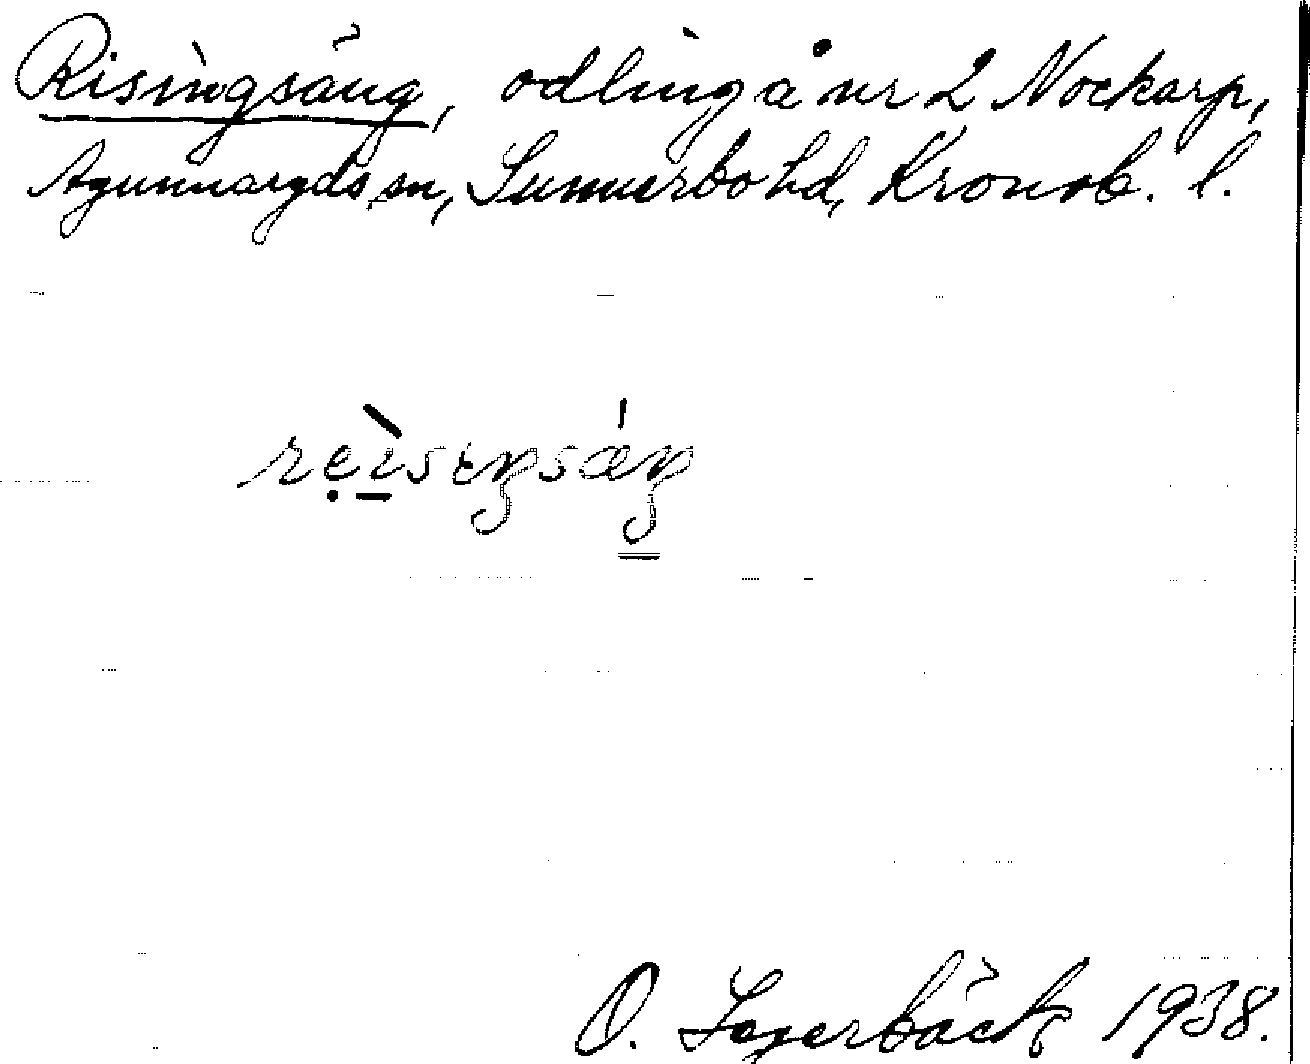 Risingsäng, odling å nr 2 Nockarp,
Agunnaryds sn, Sunnerbo hd, Kronob. l.
reisiŋsäŋ
O. Lagerbäck 1938.